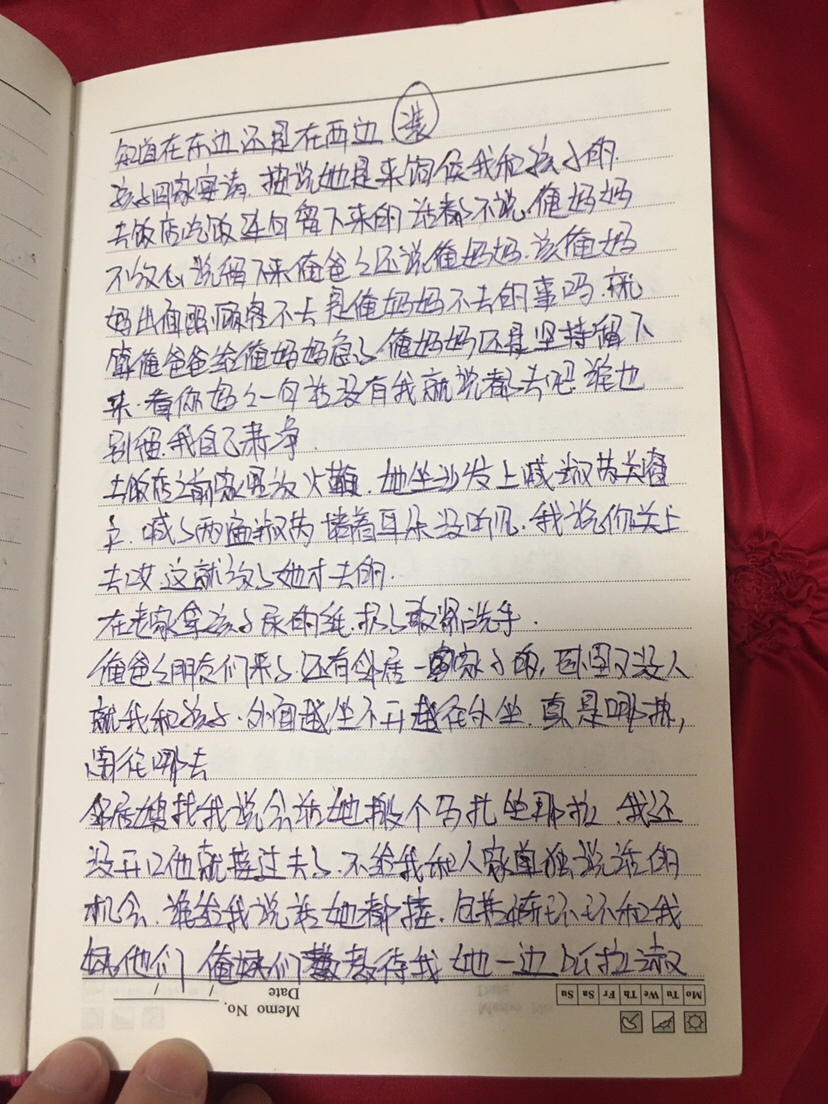 知道在东边还是在西边 装
孩子回家宴请,按说她是来伺侯我和孩子的.
去饭店吃饭连句留下来的话都不说.俺妈妈
不放心说留下来俺爸爸还说俺妈妈.该俺妈
妈出面照顾客不去是俺妈妈不去的事吗.就
算俺爸爸给俺妈妈急了俺妈妈还是坚持留下
来.看你妈妈一句话没有我就说都去吧谁也
别留.我自己肃净.
去饭店之前家里放火鞭.她坐沙发上喊淑芮关窗
户.喊了两遍淑芮捂着耳朵没听见.我说你关上
去哎这就放了她才去的.
在老家拿孩子尿的纸.扔了敢紧洗手.
俺爸爸朋友们来了还有邻居一家子的,卧室又没人
就我和孩子.外面越坐不开越往外坐.真是哪热,
闹往哪去
邻居嫂找我说会话她搬个马扎坐那拉.我还
没开口他就接过去了.不给我和人家单独说话的
机会.谁给我说话她都接.包括 环环和我
妹他们 俺妹们 待我她一边 拉淑
Memo No.
Date
Mo Tu We Th Fr Sa Su